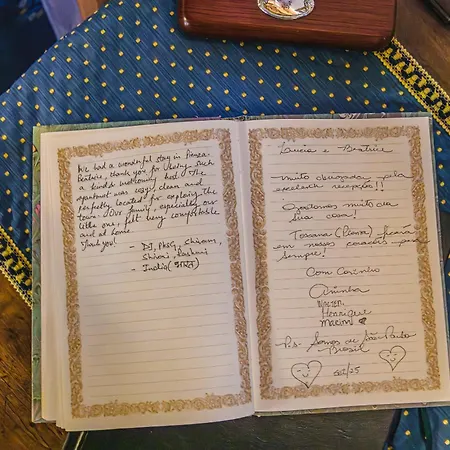 We had a wonderful stay in Pienza.
Beatrice, thank you for being such
a kind & welcoming host. The
apartment was cozy, clean and
perfectly located for exploring the
town. Our family, especially our
little one felt very comfortable
and at home.
Thank you!
- Shivam,
Rashmi
- India (भारत)
Lucia e Beatrice
muito obrigada pela
excelente recepção!!
Gostamos muito da
sua casa!
Toscana (Pienza) ficará
em nossos corações para
sempre!
Com Carinho
Aninha
Henrique
P.s. Somos de São Paulo
Brasil